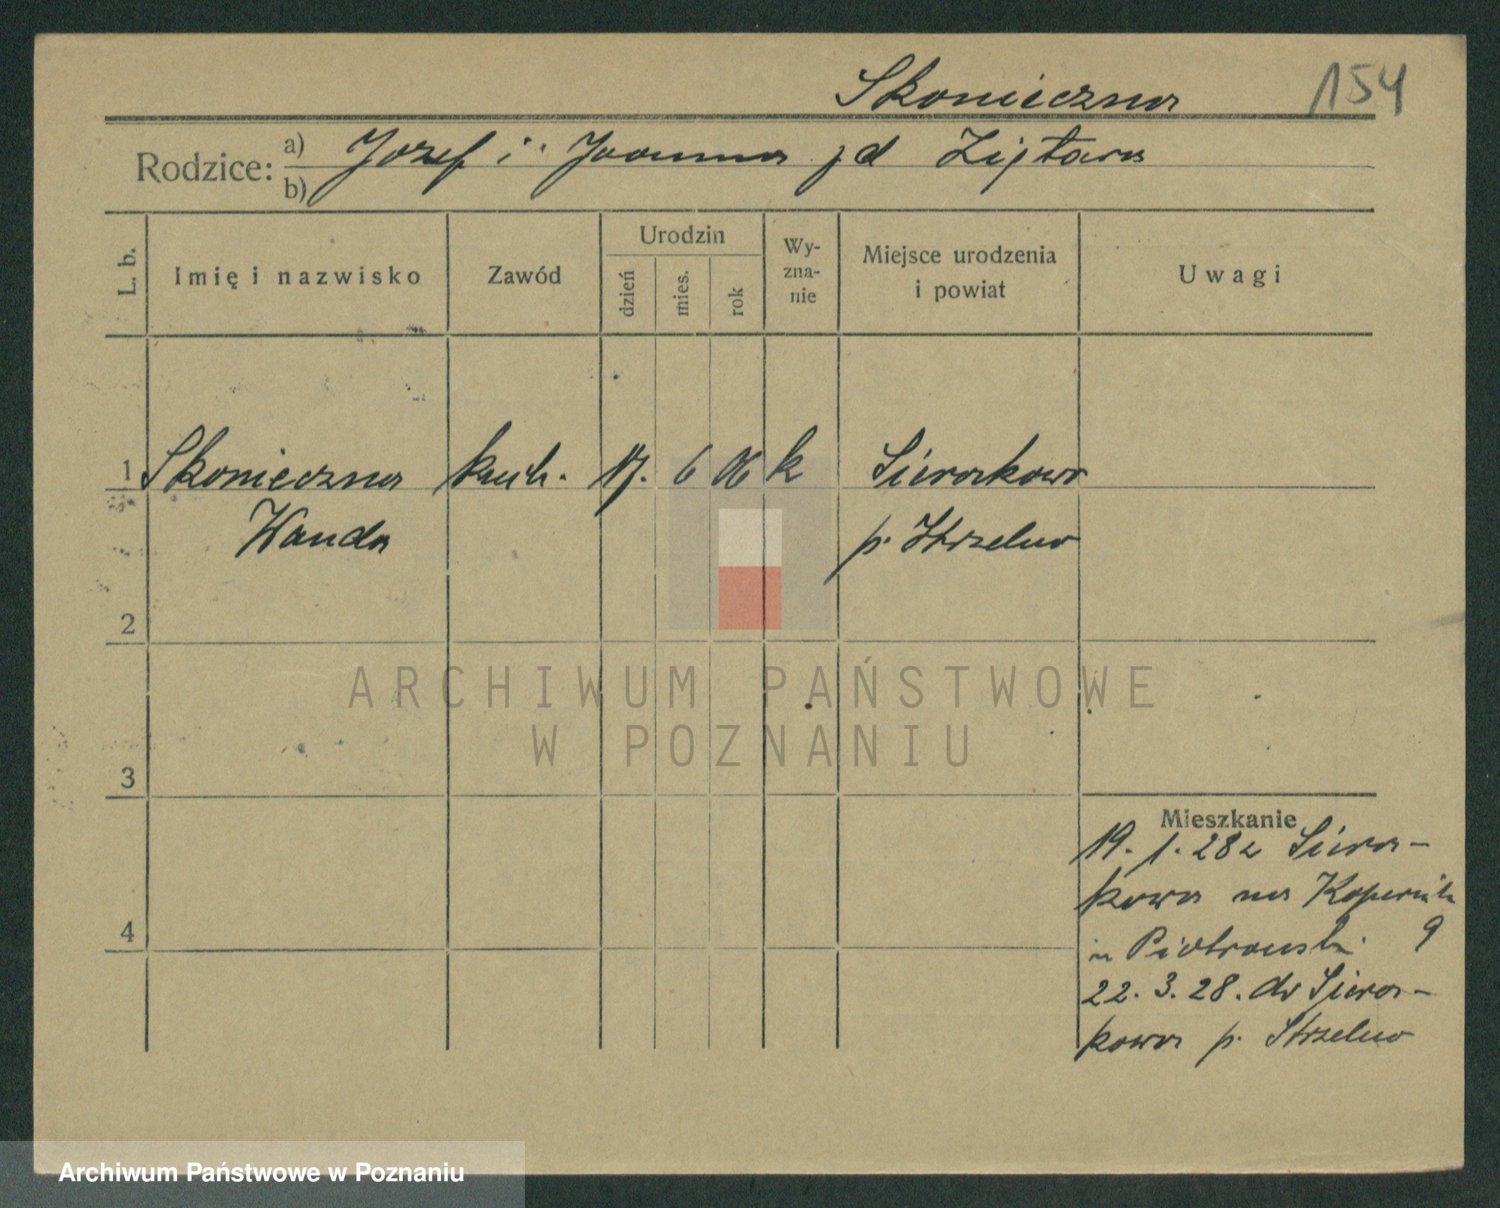 Skonieczna 154
Rodzice: a) Jozef i Joanna zd Ziętara
b)
L. b. Imię i nazwisko Zawód Urodzin dzień mies. rok Wyznanie Miejsce urodzenia i powiat Uwagi
1 Skonieczna kuch. 17. 6 06 k Sierakowo
Wanda p. Strzelno
2
ARCHIWUM PAŃSTWOWE
W POZNANIU
3
Mieszkanie
19. 1. 28 z Siera-
kowa na Kopernik
4 u Piotrowski 9
22. 3. 28. do Siera-
kowa p. Strzelno
Archiwum Państwowe w Poznaniu